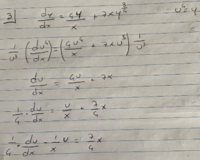 3) dy/dx = 4y/x + 7xy^(3/4) u^4 = y
1/u³ (du⁴/dx) = (4u⁴/x + 7xu³) 1/u³
du/dx = 4u/x + 7x
1/4 · du/dx = u/x + 7/4 x
1/4 · du/dx - 1/x u = 7/4 x